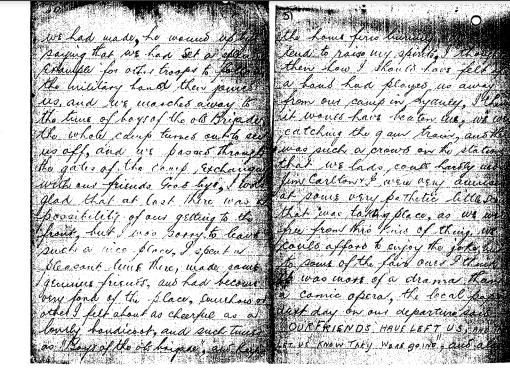 we had made, he wound up by
saying that we had set a
Example for other troops to
the military band then joined
us, and we marched away to
the tune of boys of the old Brigade
the whole camp turned out to see
us off, and we passed through
the gates of the camp, exchanging
with our friends Good bye's, I was
glad that at last there was a
possibility of our getting to the
front, but I was sorry to leave
such a nice place, I spent a
pleasant time there, made some
genuine friends, and had become
very fond of the place, somehow or
other I felt about as cheerful as a
lonely bandicoot, and such tunes
as "Boys of the old brigade", and
51
the home fires burning
tend to raise my spirits, I
then how I should have felt
a band had played us away
from our camp in Sydney, I
it would have beaten me, we were
catching the 9am train, and there
was such a crowd on the station
that we lads could hardly
Jim Carlton & I were very amused
at some very pathetic little
that was taking place, as we were
free from this kind of thing, we
could afford to enjoy the joke, but
to some of the fair ones I think
it was more of a drama than
a comic opera, the local paper
next day on our departure said
"OUR FRIENDS HAVE LEFT US,
LET US KNOW THEY WERE GOING", and